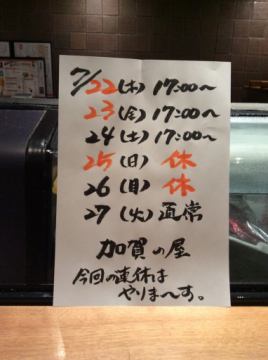 7/22(木) 17:00〜
23(金) 17:00〜
24(土) 17:00〜
25(日) 休
26(月) 休
27(火) 通常
加賀の屋
今回の連休は
やりまーす。